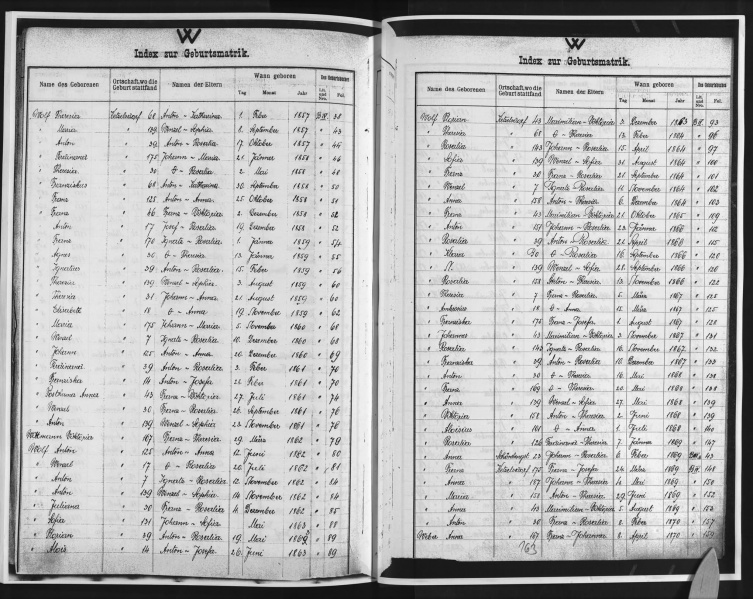 W
Index zur Geburtsmatrik.
Name des Geborenen Ortschaft, wo die Geburt stattfand Namen der Eltern Wann geboren Tag Monat Jahr Des Geburtsbuches Lit. und Nro. Fol.
Wolf Theresia 68 Anton - Katharina 1. Feber 1857 38
" Maria " 139 Wenzel - Sophia 8. September 1857 " 43
" Anton " 39 Anton - Rosalia 17. Oktober 1857 " 45
" Ferdinand " 175 Johann - Maria 21. Jänner 1858 " 46
" Theresia " 30 - Rosalia 2. Mai 1858 " 48
" Franziskus " 68 Anton - Katharina 30. September 1858 " 50
" Franz " 125 Anton - Anna 25. Oktober 1858 " 51
" Franz " 46 Franz - 2. Dezember 1858 " 52
" Anton " 17 Josef - Rosalia 19. Dezember 1858 " 52
" Franz " 170 Ignatz - Rosalia 1. Jänner 1859 " 54
" Agnes " 30 - Theresia 13. Jänner 1859 " 55
" Ignatius " 39 Anton - Rosalia 15. Feber 1859 " 56
" Theresia " 139 Wenzel - Sophia 3. August 1859 " 60
" Theresia " 31 Johann - Anna 21. August 1859 " 60
" Elisabeth " 18 - Anna 19. November 1859 " 62
" Maria " 175 Johann - Maria 5. November 1860 " 68
" Wenzel " 7 Ignatz - Rosalia 10. Dezember 1860 " 68
" Johann " 125 Anton - Anna 20. Dezember 1860 " 69
" Ferdinand " 39 Anton - Rosalia 3. Feber 1861 " 70
" Franziska " 14 Anton - Josefa 22. Feber 1861 " 70
" Anna " 43 Franz - 27. Juli 1861 " 74
" Wenzel " 30 Franz - Rosalia 26. September 1861 " 76
" Anton " 139 Wenzel - Sophia 23. November 1861 " 76
" 167 Franz - Theresia 29. März 1862 " 79
Wolf Anton " 125 Anton - Anna 12. Juni 1862 " 80
" Wenzel " 17 - Rosalia 20. Juli 1862 " 81
" Anton " 7 Ignatz - Rosalia 12. November 1862 " 84
" Anton " 139 Wenzel - Sophia 14. November 1862 " 84
" Juliana " 30 Franz - Rosalia 4. Dezember 1862 " 85
" Sofia " 131 Johann - Sofia Mai 1863 " 88
" Florian " 39 Anton - Rosalia 19. Mai " 89
" Alois " 14 Anton - Josefa 26. Juni 1863 " 89
W
Index zur Geburtsmatrik.
Name des Geborenen Ortschaft, wo die Geburt stattfand Namen der Eltern Wann geboren Tag Monat Jahr Des Geburtsbuches Lit. und Nro. Fol.
Wolf 43 Maximilian - 3. Dezember 1863 93
" Theresia " 68 - Theresia 13. Feber 1864 " 96
" Rosalia " 143 Johann - Rosalia 15. April 1864 " 97
" Sofia " 139 Wenzel - Sofia 31. August 1864 " 100
" Franz " 30 Franz - Rosalia 21. September 1864 " 101
" Wenzel " 7 Ignatz - Rosalia 11. November 1864 " 102
" Anna " 158 Anton - Theresia 6. Dezember 1864 " 103
" Franz " 43 Maximilian - 21. Oktober 1865 " 109
" Anton " 151 Johann - Rosalia 23. Jänner 1866 " 112
" Rosalia " 39 Anton - Rosalia 21. April 1866 " 115
" 70 - Rosalia 16. September 1866 " 120
" N. " 139 Wenzel - Sofia 28. September 1866 " 120
" Rosalia " 158 Anton - Theresia 13. November 1866 " 122
" Theresia " 7 Franz - Rosalia 5. März 1867 " 125
" 18 - Anna 15. März 1867 " 125
" Franziska " 175 Franz - Josefa 1. August 1867 " 128
" Johannes " 43 Maximilian - 3. November 1867 " 131
" Rosalia " 143 Ignatz - Rosalia 16. November 1867 " 132
" Franziska " 39 Anton - Rosalia 10. Dezember 1867 " 133
" Anton " 30 - Theresia 16. Mai 1868 " 138
" Franz " 169 - Theresia 20. Mai 1868 " 138
" Anna " 139 Wenzel - Sofia 27. Mai 1868 " 139
" 158 Anton - Theresia 2. Juni 1868 " 139
" Aloisius " 101 - Anna 1. Juli 1868 " 140
" Rosalia " 126 Ferdinand - Theresia 7. Jänner 1869 " 147
" Anna 23 Johann - Rosalia 6. Feber 1869 43
" Franz 175 Franz - Josefa 24. März 1869 148
" Anna " 157 Johann - Theresia 4. Mai 1869 " 150
" Maria " 158 Anton - Theresia 29. Juni 1869 " 152
" Anna " 43 Maximilian - 5. August 1869 " 153
" Anton " 30 Franz - Rosalia 8. Feber 1870 " 157
Weber Anna " 167 Franz - Johanna 8. April 1870 " 159
163